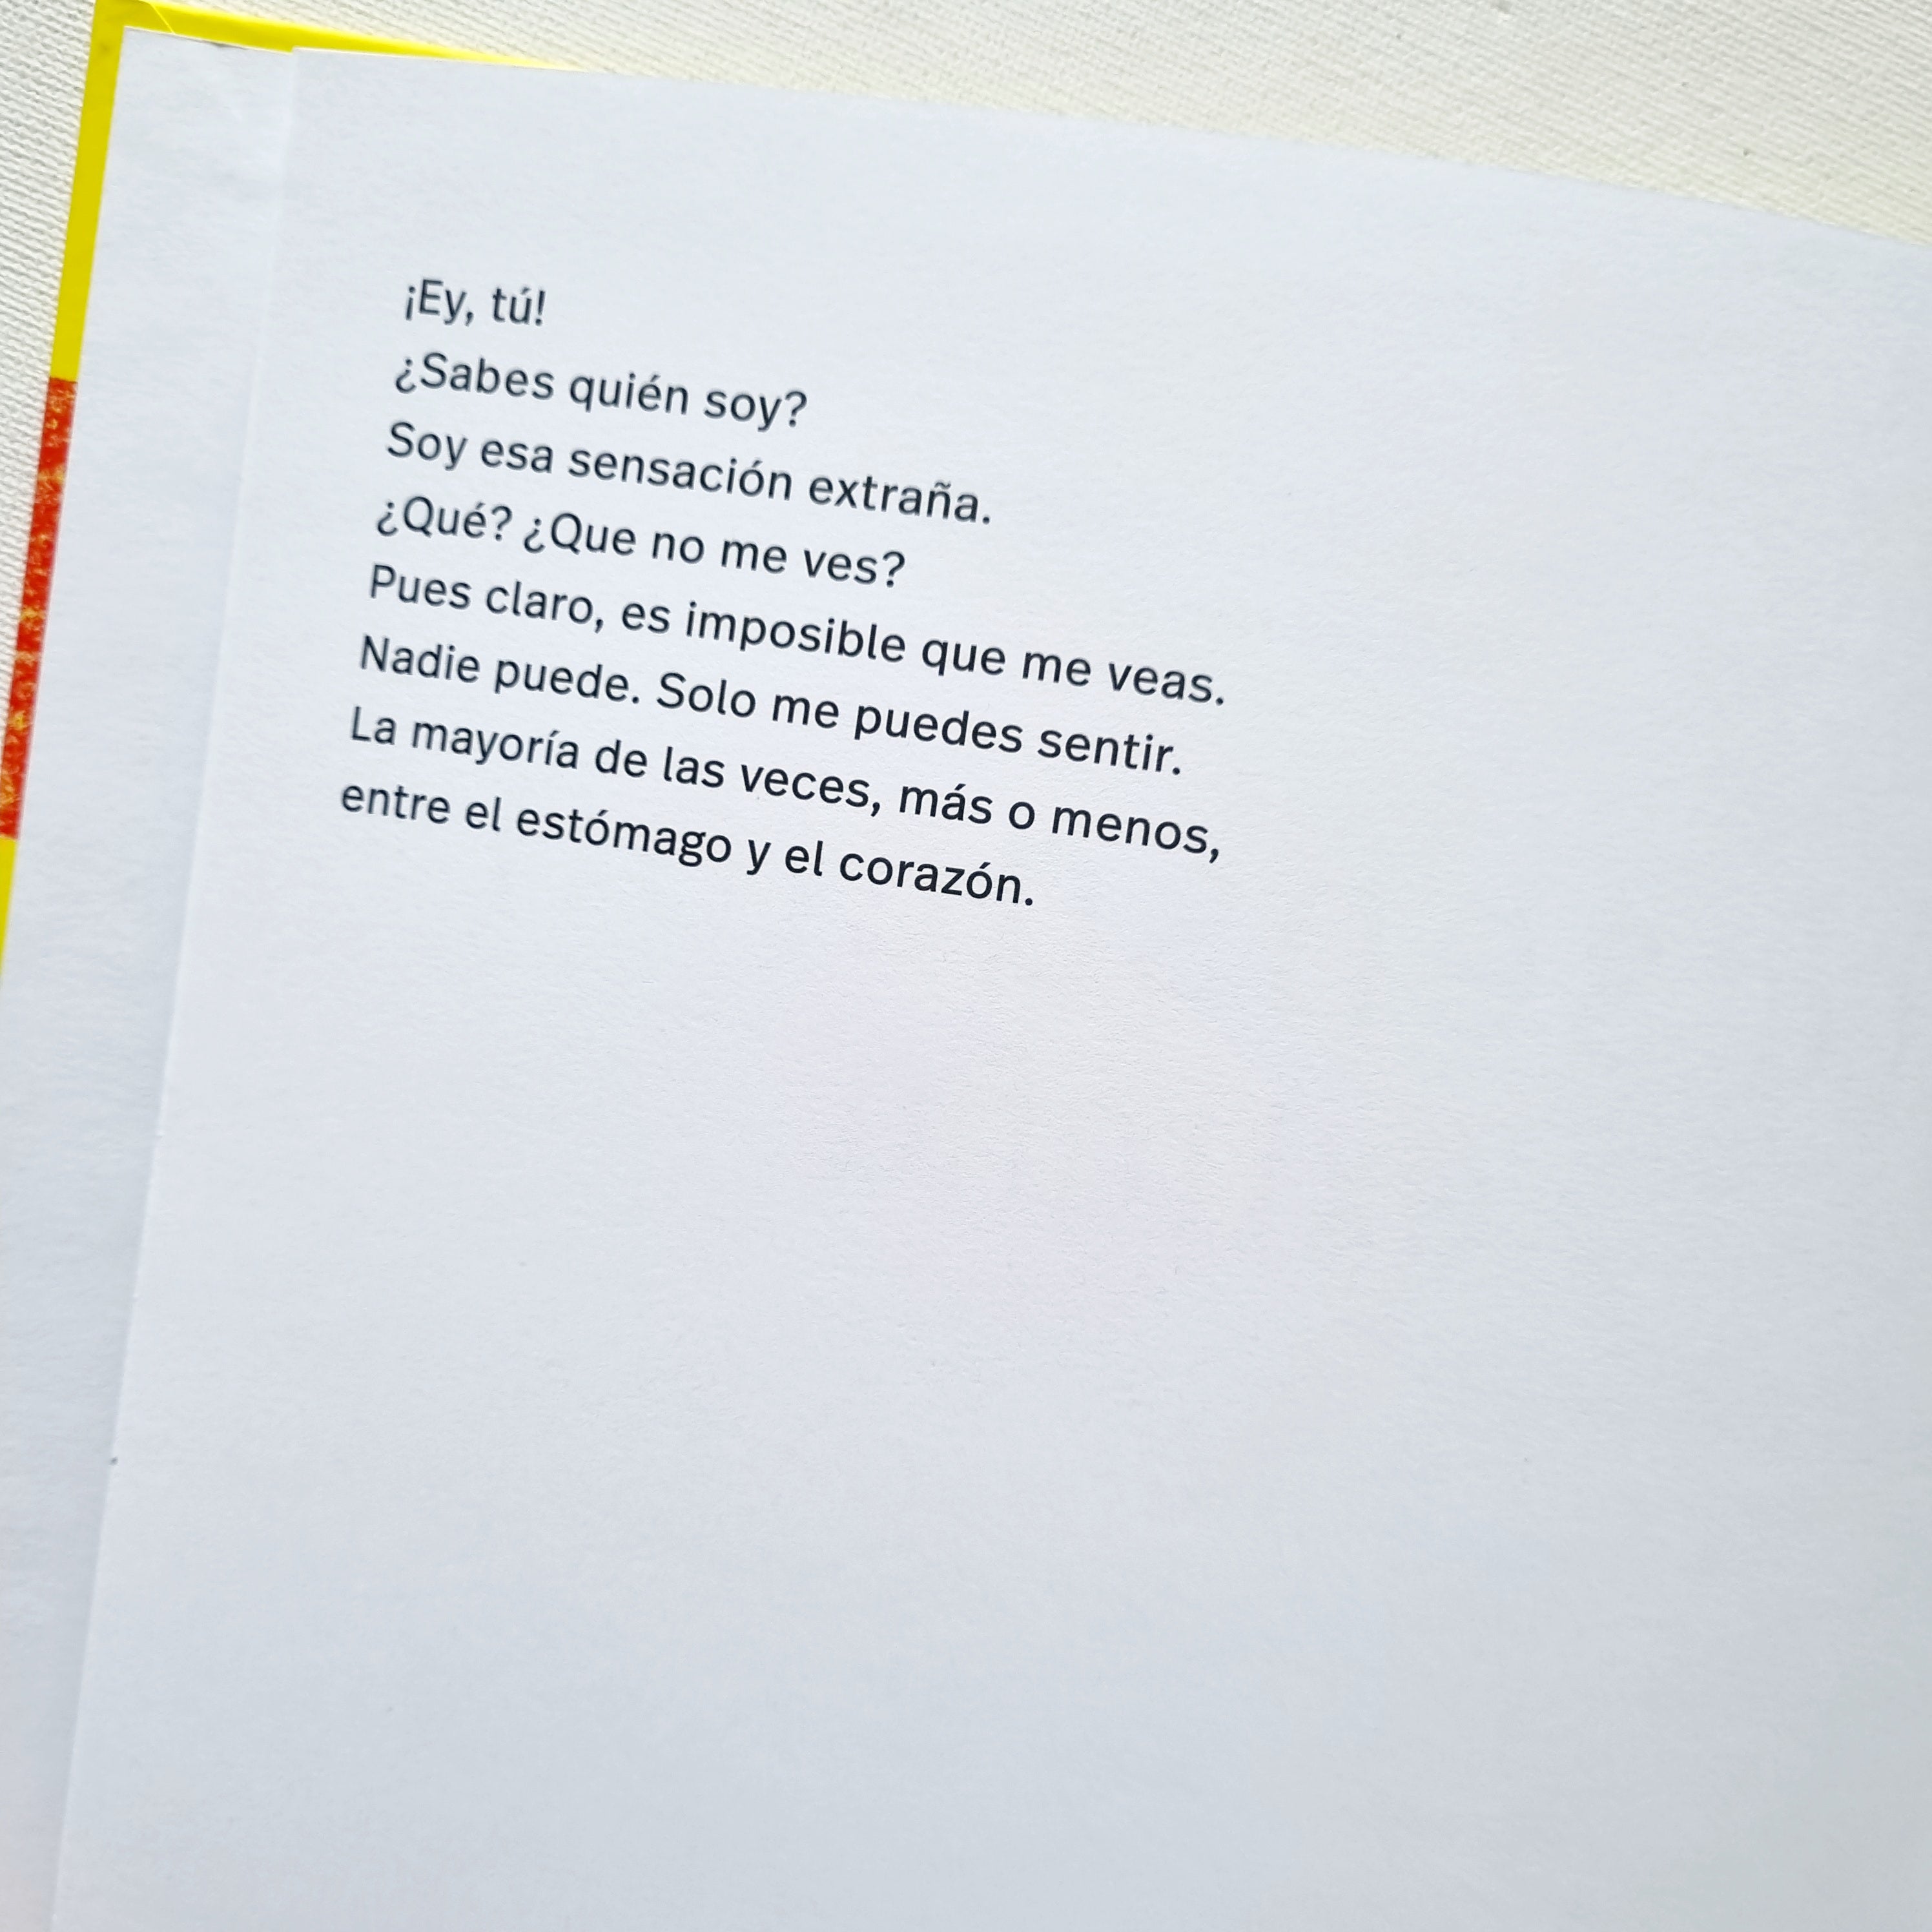 ¡Ey, tú!
¿Sabes quién soy?
Soy esa sensación extraña.
¿Qué? ¿Que no me ves?
Pues claro, es imposible que me veas.
Nadie puede. Solo me puedes sentir.
La mayoría de las veces, más o menos,
entre el estómago y el corazón.